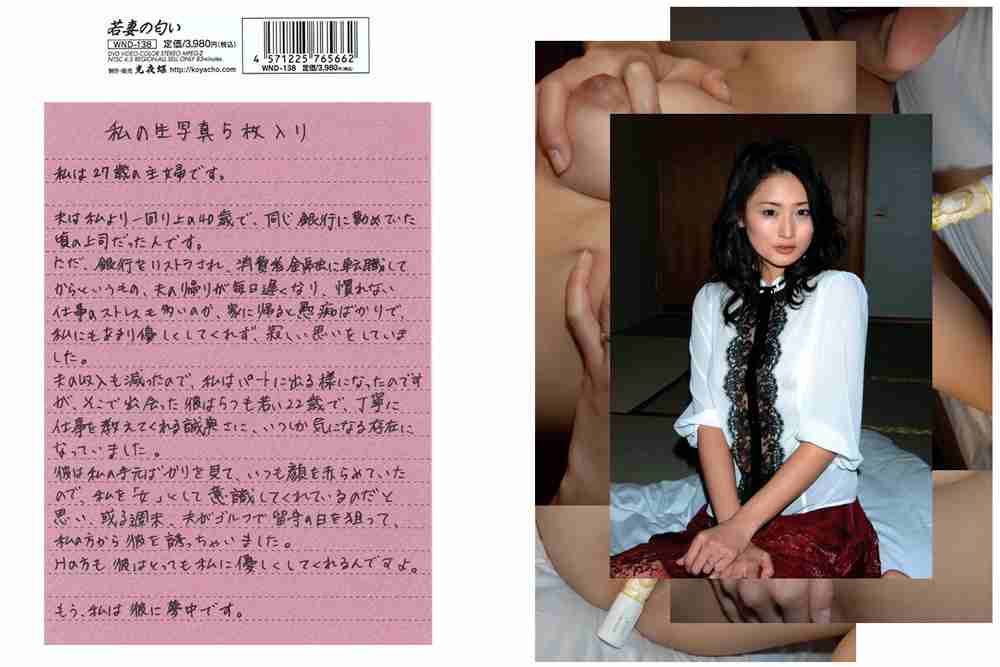 若妻の匂い
WND-138 定価/3,980円(税込)
DVD VIDEO・COLOR STEREO MPEG-2
NTSC 4:3 REGION-ALL SELL ONLY 83minutes.
制作・販売 光夜蝶 http://koyacho.com
4 571225 765662
WND-138 定価/3,980円(税込)
私の生写真5枚入り
私は27歳の主婦です。
夫は私より一回り上の40歳で、同じ銀行に勤めていた
頃の上司だった人です。
ただ、銀行をリストラされ、消費者金融に転職して
からというもの、夫の帰りが毎日遅くなり、慣れない
仕事のストレスも多いのか、家に帰ると愚痴ばかりで、
私にもあまり優しくしてくれず、寂しい思いをしていま
した。
夫の収入も減ったので、私はパートに出る様になったのです
が、そこで出会った彼は5つも若い22歳で、丁寧に
仕事を教えてくれる誠実さに、いつしか気になる存在に
なっていました。
彼は私の手元ばかりを見て、いつも顔を赤らめていた
ので、私を「女」として意識してくれているのだと
思い、或る週末、夫がゴルフで留守の日を狙って、
私の方から彼を誘っちゃいました。
Hの方も彼はとっても私に優しくしてくれるんですよ。
もう、私は彼に夢中です。